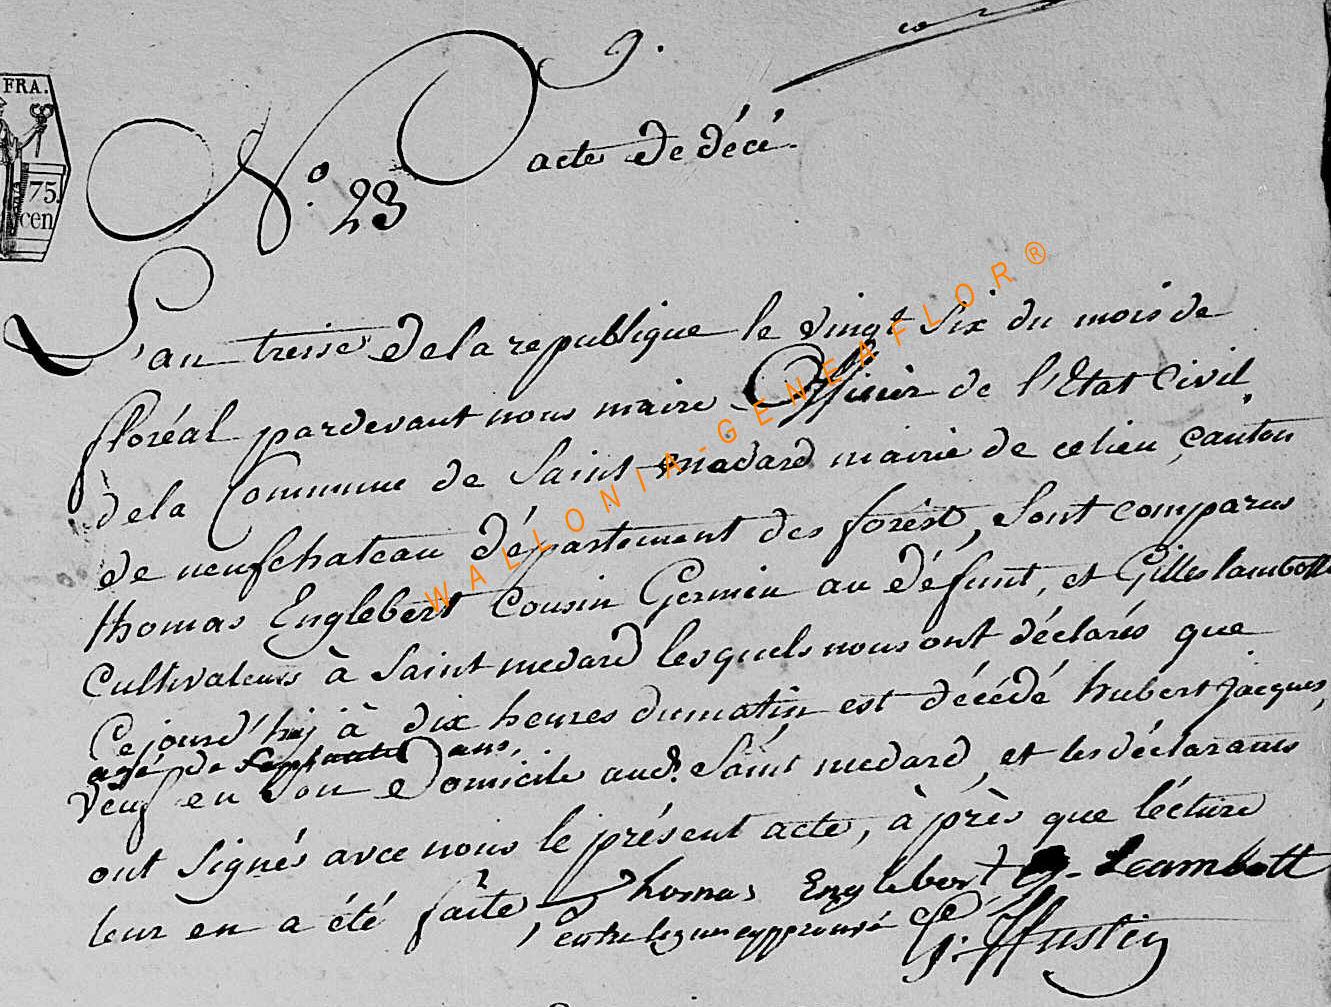 9.
FRA.
75.
cen
N.° 23
acte de décé.
L'an treise de la republique le vingt six du mois de
floréal pardevant nous maire Officier de l'Etat Civil
de la Commune de Saint medard mairie de ce lieu, canton
de neufchateau département des forêst, Sont comparus
thomas Englebert Cousin Germin au défunt, et Gilles lambott
Cultivateurs à Saint medard lesquels nous ont déclarés que
Cejourd'huj à dix heures du matin est décédé hubert jacques,
agé de Septante ans,
Veuf en Son Domicile aud. Saint medard, et les déclarants
ont Signés avec nous le présent acte, à près que lécture
leur en a été faite, Thomas Englebert G. Leambott
entre lignes approuvé
WALLONIA-GENEAFLOR®